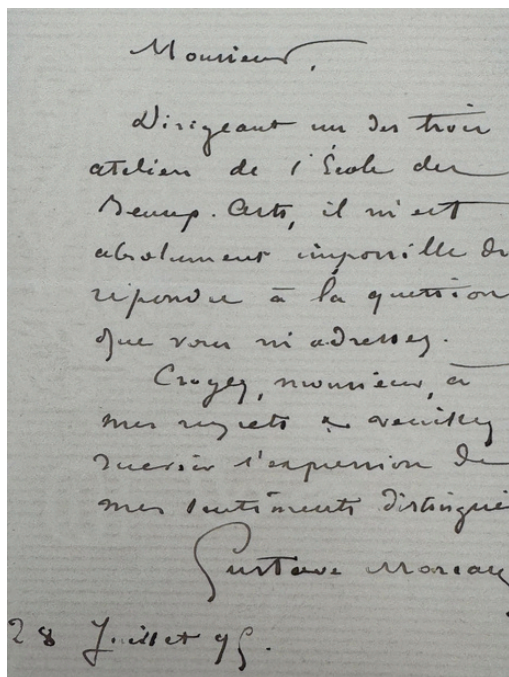 Monsieur,
Dirigeant un des trois
ateliers de l'École des
Beaux-Arts, il m'est
absolument impossible de
répondre à la question
que vous m'adressez.
Croyez, monsieur, à
mes regrets & veuillez
recevoir l'expression de
mes sentiments distingué
Gustave Moreau
28 Juillet 95.